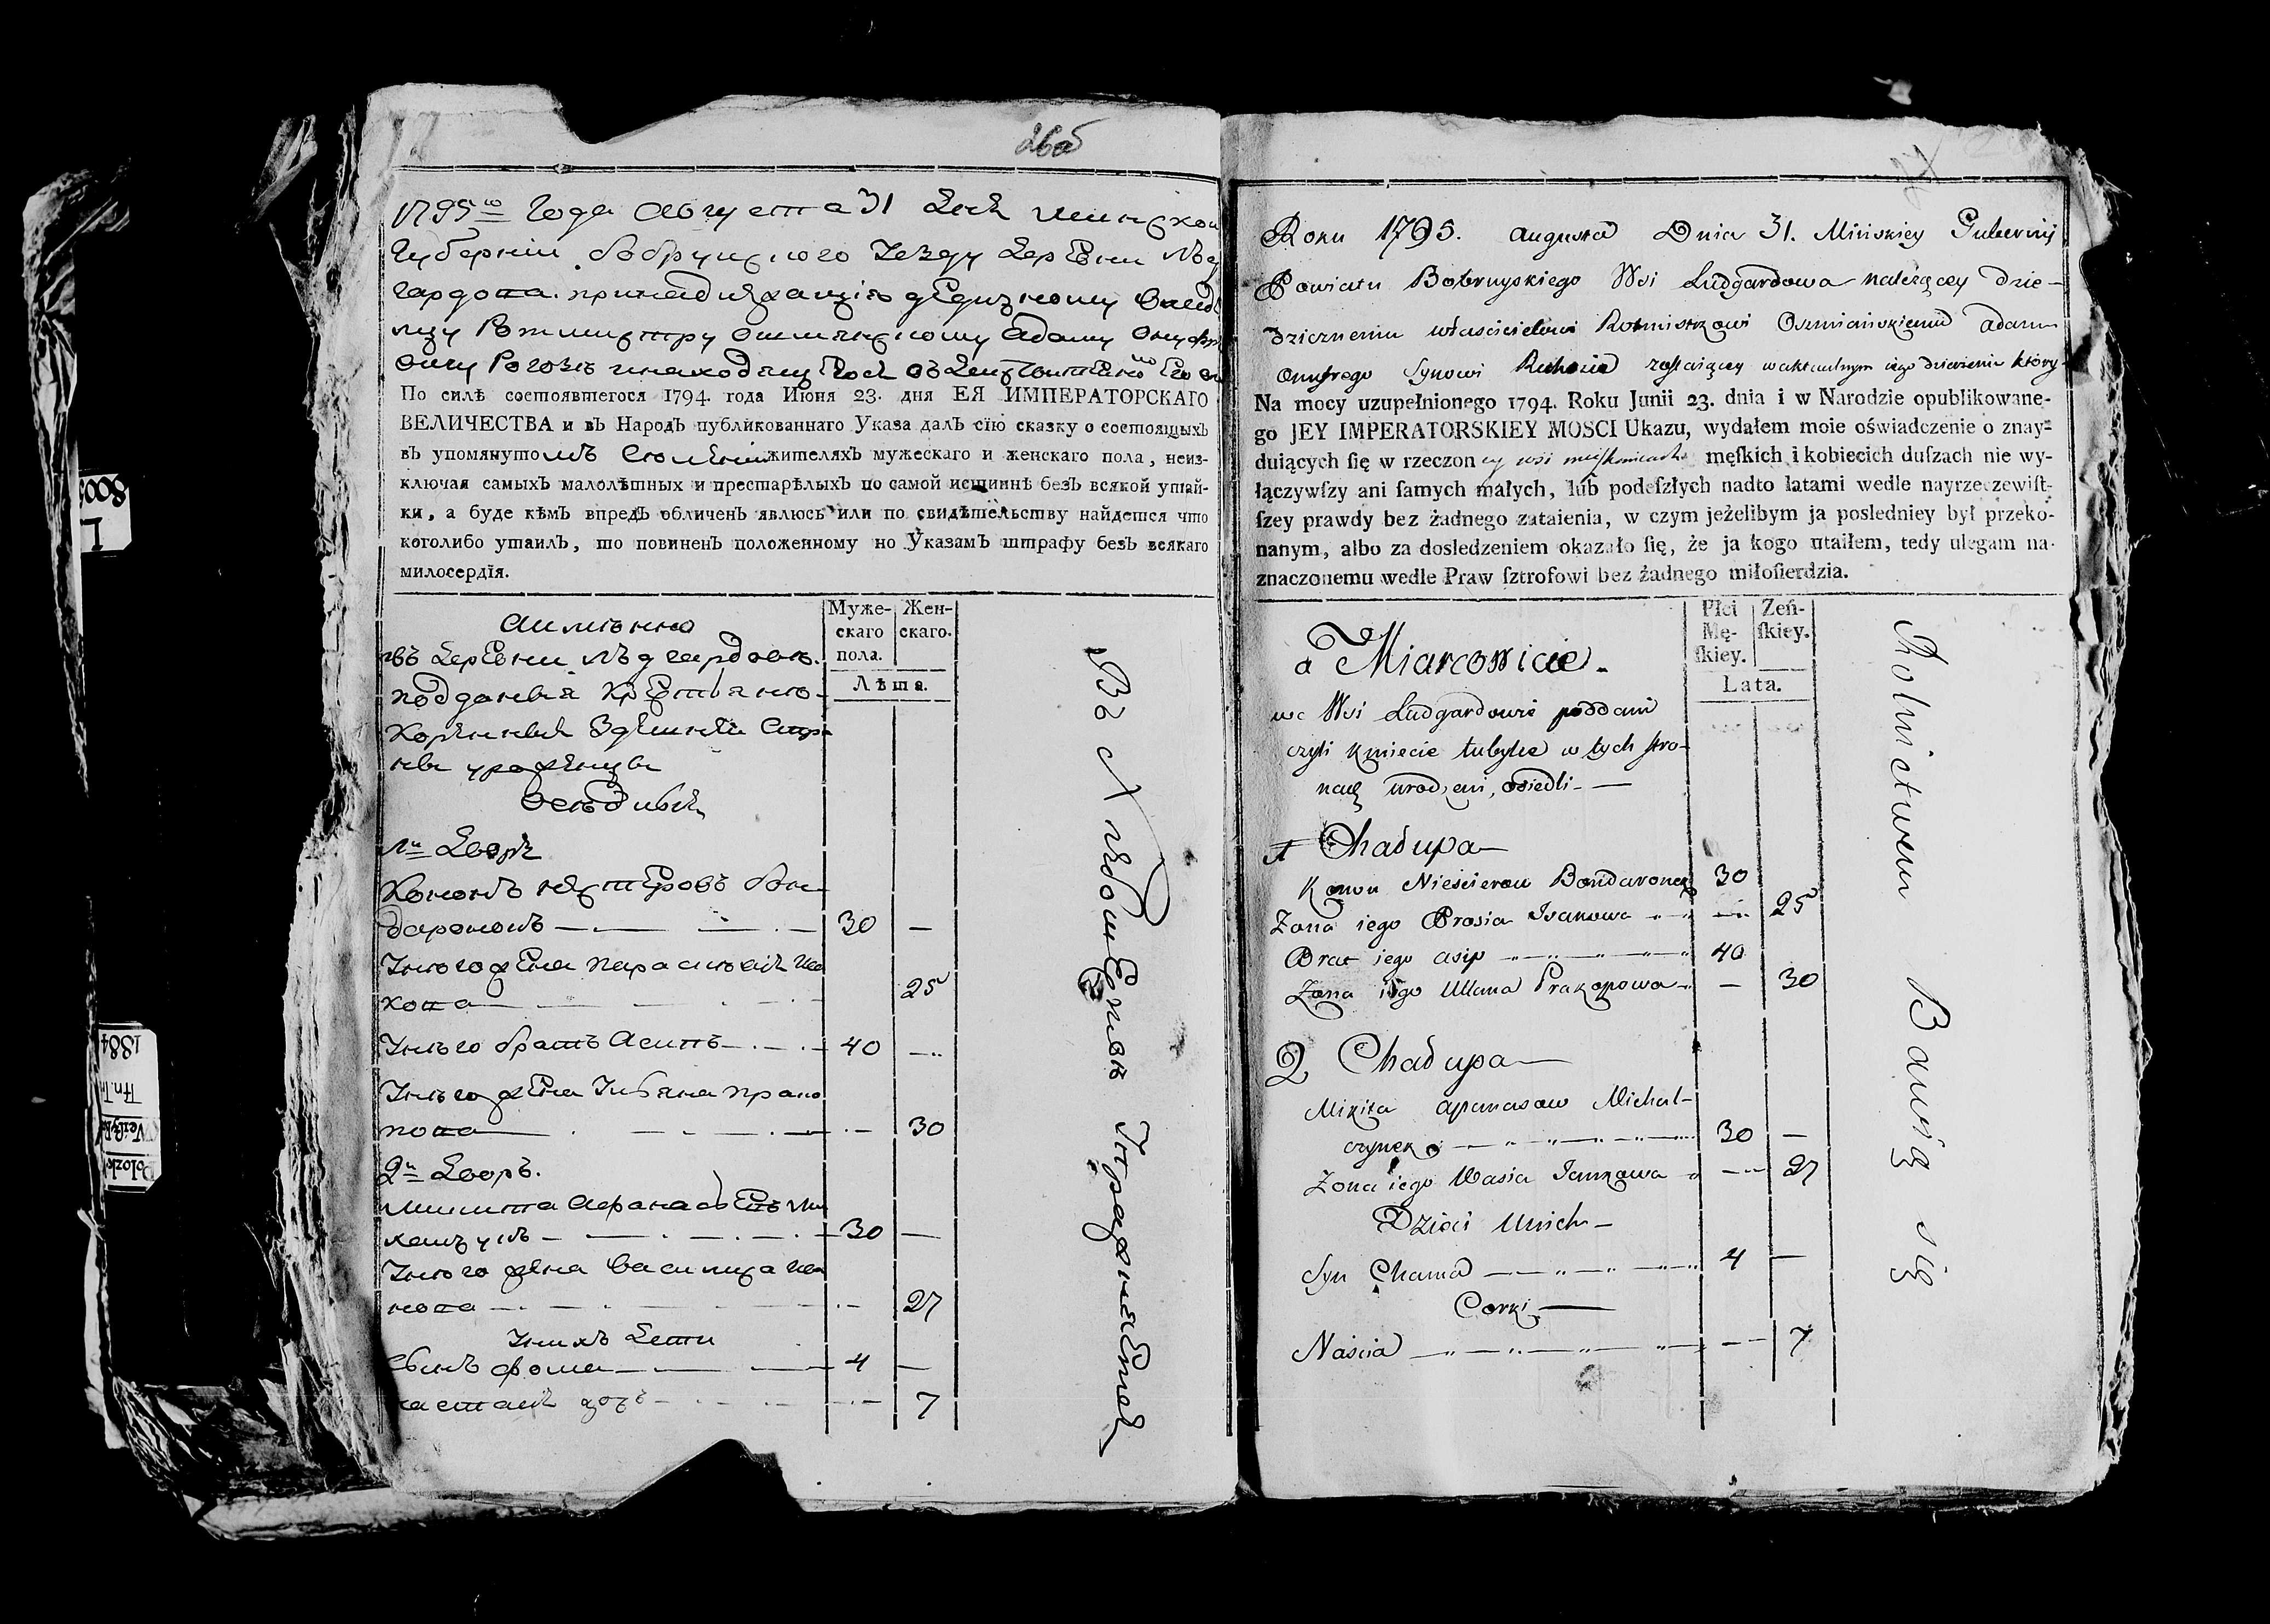 26об
1795го Года Августа 31 дня Минской
Губернии Бобруйского уезду деревни Люд
гардова принадлежащию дедизному владе
лцу Ротмистру Ошмянскому Адаму Онуфри
По силѣ состоявшегося 1794. года Июня 23. дня ЕЯ ИМПЕРАТОРСКАГО
ВЕЛИЧЕСТВА и въ Народъ публикованнаго Указа далъ сїю сказку о состоящыхъ
въ упомянутомъ селении жителяхъ мужескаго и женскаго пола, неиз-
ключая самыхъ малолѣтныхъ и престарѣлыхъ по самой истиннѣ безъ всякой утай-
ки, а буде кѣмъ впредъ обличенъ явлюсь или по свидѣтельству найдется что
коголибо утаилъ, то повиненъ положенному по Указамъ штрафу безъ всякаго
милосердїя.
Муже-скаго пола.
Жен-скаго.
Лѣта.
а именно
въ деревни Людгардовѣ
подданныя крестьяне
коренныя здешней сторо
ны уроженцы
оседлыя
1й Дворъ
Кононъ Нестеровъ Бон
даронокъ 30 —
У него жена Парасковия Иса
кова 25
У него братъ Асипъ 40 —
У него жена Ульяна Проко
пова — 30
2й Дворъ.
Микита Афанасьевъ Ми
халчукъ 30 —
У него жена Василиса Ива
нова — 27
У нихъ дети
сынъ Фома 4 —
настасия дочь — 7
въ хлебопашествѣ упражняется
Roku 1795. Augusta Dnia 31. Minskiey Gubernij
Powiatu Bobruyskiego Wsi Ludgardowa należącey dzie-
dzicznemu właścicielowi Rotmistrzowi Oszmianskiemu Adam
Onufrego Synowi zostaiącey w aktualnym iego dzierżeniu który
Na mocy uzupełnionego 1794. Roku Junii 23. dnia i w Narodzie opublikowane-
go JEY IMPERATORSKIEY MOSCI Ukazu, wydałem moie oświadczenie o znay-
duiących ſię w rzeczoney wsi mieszkancach męſkich i kobiecich duſzach nie wy-
łączywſzy ani ſamych małych, lub podeſzłych nadto latami wedle nayrzeczewiſt-
ſzey prawdy bez żadnego zataienia, w czym jeżelibym ja posledniey był przeko-
nanym, albo za dosledzeniem okazało ſię, że ja kogo utaiłem, tedy ulegam na-
znaczonemu wedle Praw ſztrofowi bez żadnego miłoſierdzia.
Płci Mę-ſkiey.
Zeń-ſkiey.
Lata.
a Mianowicie
we Wsi Ludgardowie poddani
czyli kmiecie tubylce w tych stro-
nach urodzeni, osiedli
1 Chałupa
Konon Nieścierow Bondaronek 30
Zona iego Prosia Isakowa 25
Brat iego Asip 40
Zona iego Ullana Prakopowa — 30
2 Chałupa
Mikita Apanasow Michal-
czynek 30 —
Zona iego Wasia Jankowa — 27
Dzieci Unich
Syn Chama 4 —
Corki
Naścia — 7
Rolnictwem Bawią się